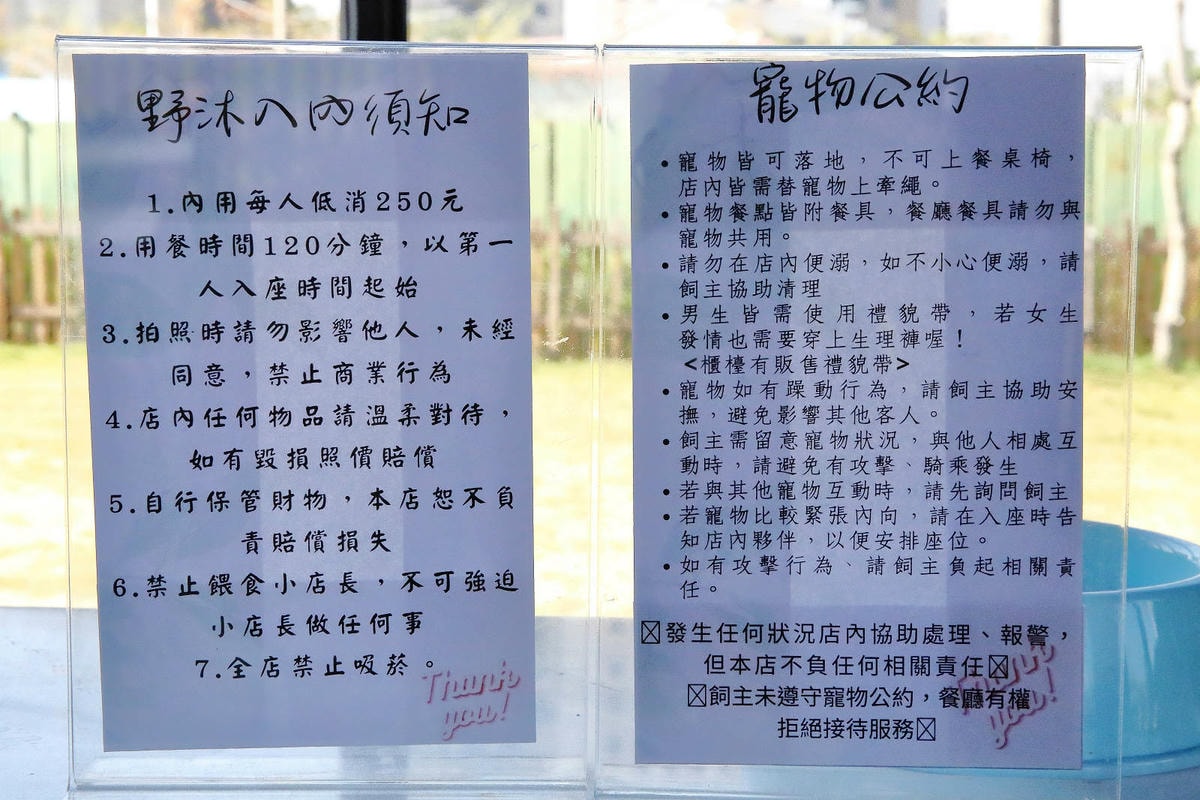 野沐入內須知
1.內用每人低消250元
2.用餐時間120分鐘，以第一
人入座時間起始
3.拍照時請勿影響他人，未經
同意，禁止商業行為
4.店內任何物品請溫柔對待，
如有毀損照價賠償
5.自行保管財物，本店恕不負
責賠償損失
6.禁止餵食小店長，不可強迫
小店長做任何事
7.全店禁止吸菸。
Thank
you!
寵物公約
•寵物皆可落地，不可上餐桌椅，
店內皆需替寵物上牽繩。
•寵物餐點皆附餐具，餐廳餐具請勿與
寵物共用。
•請勿在店內便溺，如不小心便溺，請
飼主協助清理
•男生皆需使用禮貌帶，若女生
發情也需要穿上生理褲喔！
<櫃檯有販售禮貌帶>
•寵物如有躁動行為，請飼主協助安
撫，避免影響其他客人。
•飼主需留意寵物狀況，與他人相處互
動時，請避免有攻擊、騎乘發生
•若與其他寵物互動時，請先詢問飼主
•若寵物比較緊張內向，請在入座時告
知店內夥伴，以便安排座位。
•如有攻擊行為、請飼主負起相關責
任。
發生任何狀況店內協助處理、報警，
但本店不負任何相關責任
飼主未遵守寵物公約，餐廳有權
拒絕接待服務
Thank
you!